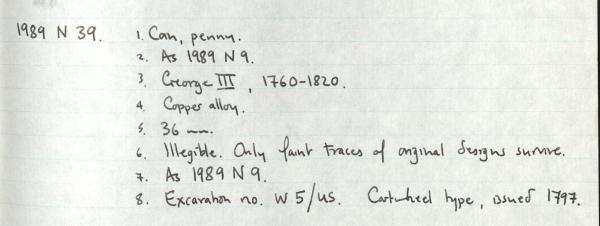 1989 N 39. 1. Coin, penny.
2. As 1989 N 9.
3. George III, 1760-1820.
4. Copper alloy.
5. 36 mm.
6. Illegible. Only faint traces of original designs survive.
7. As 1989 N 9.
8. Excavation no. W 5/US. Cartwheel type, issued 1797.